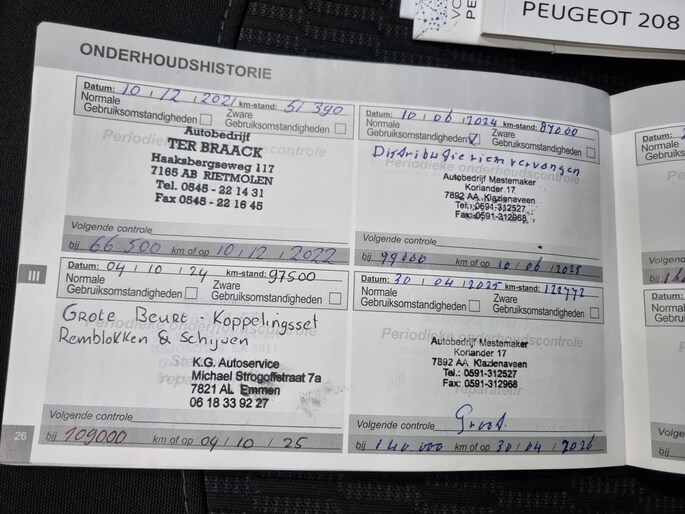 PEUGEOT 208
ONDERHOUDSHISTORIE
Datum: 10 / 12 / 2021 km-stand: 51 390
Normale Gebruiksomstandigheden
Zware Gebruiksomstandigheden
Autobedrijf
TER BRAACK
Haaksbergseweg 117
7165 AB RIETMOLEN
Tel. 0545 - 22 14 31
Fax 0545 - 22 16 45
Volgende controle
bij 66 500 km of op 10 / 12 / 2022
Datum: 10 / 06 / 2024 km-stand: 87000
Normale Gebruiksomstandigheden
Zware Gebruiksomstandigheden
Distributieriem vervangen
Periodieke onderhoudscontrole
Autobedrijf Mestemaker
Koriander 17
7892 AA Klazienaveen
Tel.: 0591-312527
Fax: 0591-312968
Volgende controle
bij km of op 10 / 06 / 2025
III
Datum: 04 / 10 / 24 km-stand: 97500
Normale Gebruiksomstandigheden
Zware Gebruiksomstandigheden
Grote Beurt - Koppelingsset
Remblokken & Schijven
K.G. Autoservice
Michael Strogoffstraat 7a
7821 AL Emmen
06 18 33 92 27
Volgende controle
bij 109000 km of op 04 / 10 / 25
Datum: 30 / 04 / 2025 km-stand:
Normale Gebruiksomstandigheden
Zware Gebruiksomstandigheden
Periodieke onderhoudscontrole
Autobedrijf Mestemaker
Koriander 17
7892 AA Klazienaveen
Tel.: 0591-312527
Fax: 0591-312968
Volgende controle
Groot.
bij 140 000 km of op 30 / 04 / 2026
26